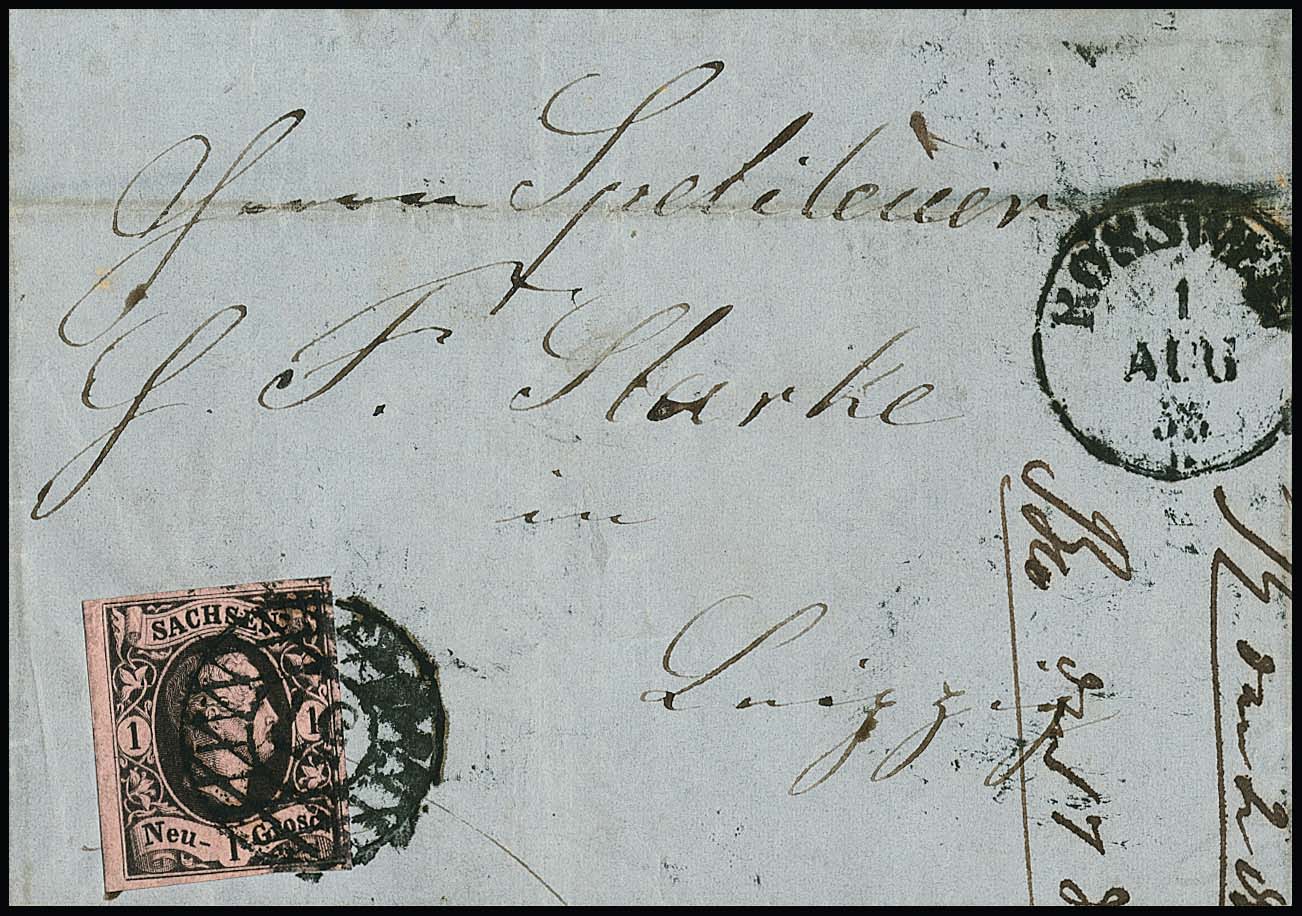 Herrn Spediteuer
G. F. Starke
in
Leipzig
ROSSWEIN
1
AUG
58
SACHSEN
1 1
Neu- 1 Grosch